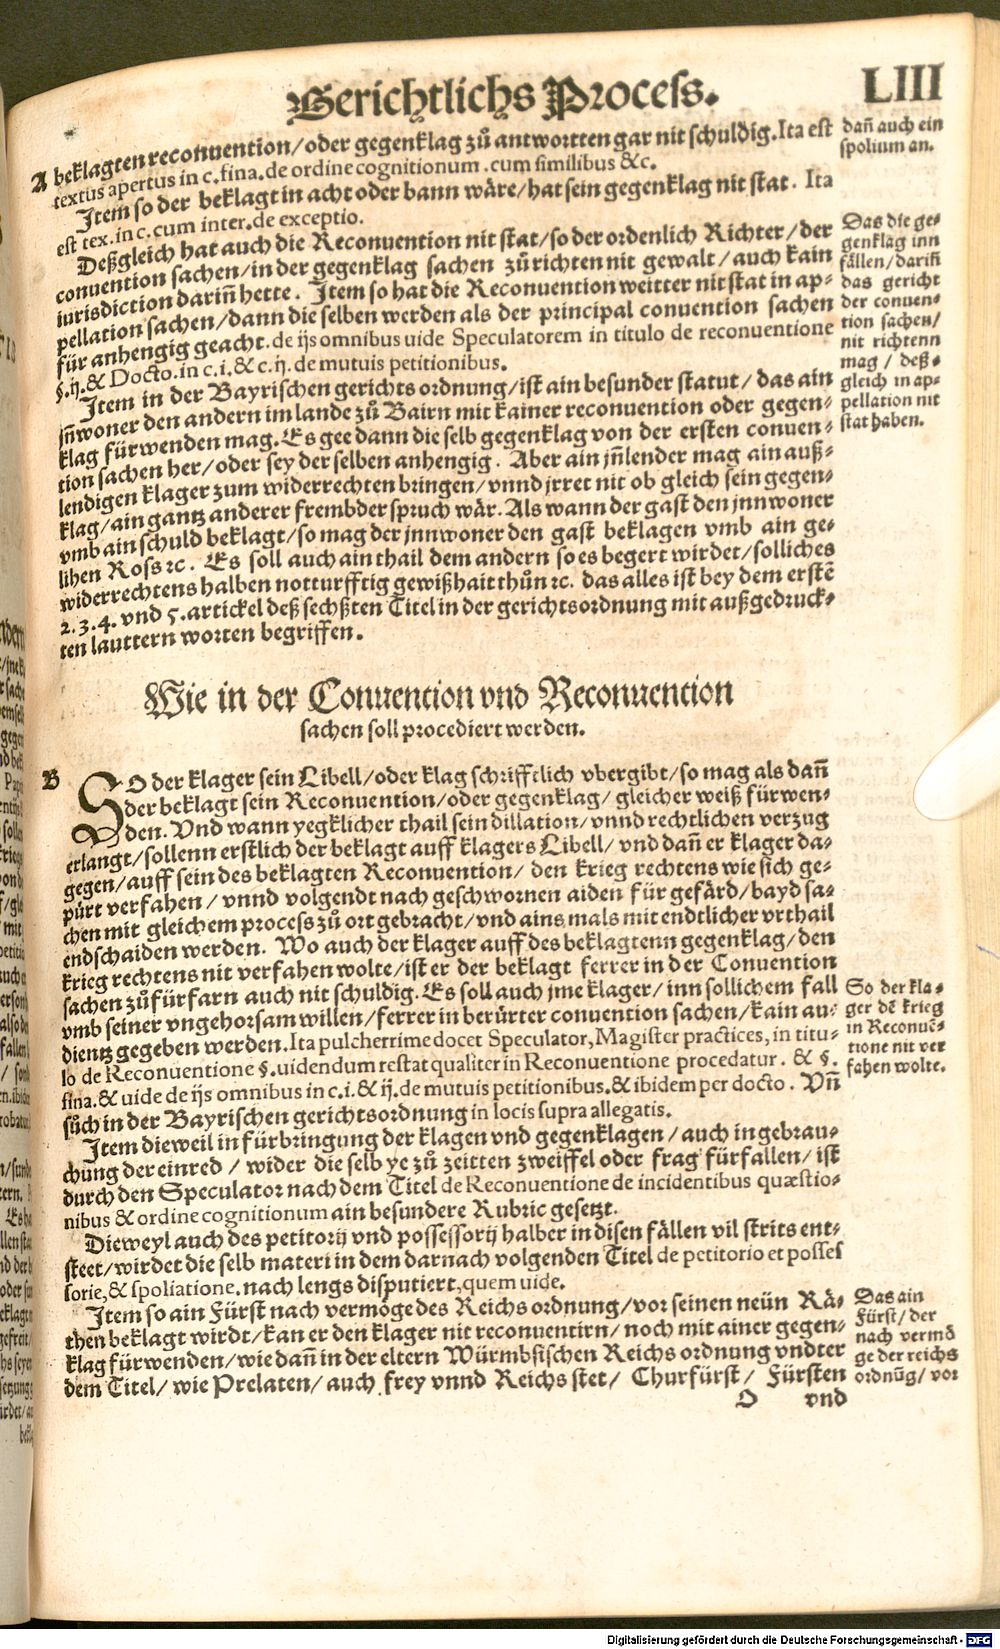 Gerichtlichs Process. LIII
A beklagten reconuention/oder gegenklag zů antwortten gar nit schuldig. Ita est
textus apertus in c. fina. de ordine cognitionum. cum similibus &c.
Item so der beklagt in acht oder bann wäre/hat sein gegenklag nit stat. Ita
est tex. in c. cum inter. de exceptio.
Deßgleich hat auch die Reconuention nit stat/so der ordenlich Richter/der
conuention sachen/in der gegenklag sachen zů richten nit gewalt/auch kain
iurisdiction darin̄ hette. Item so hat die Reconuention weitter nit stat in ap-
pellation sachen/dann die selben werden als der principal conuention sachen
für anhengig geacht. de ijs omnibus uide Speculatorem in titulo de reconuentione
§. ij. & Docto. in c. i. & c. ij. de mutuis petitionibus.
Item in der Bayrischen gerichts ordnung/ist ain besunder statut/das ain
jn̄woner den andern im lande zů Bairn mit kainer reconuention oder gegen-
klag fürwenden mag. Es gee dann die selb gegenklag von der ersten conuen-
tion sachen her/oder sey der selben anhengig. Aber ain jn̄lender mag ain auß-
lendigen klager zum widerrechten bringen/vnnd jrret nit ob gleich sein gegen-
klag/ain gantz anderer frembder spruch wär. Als wann der gast den jnnwoner
vmb ain schuld beklagt/so mag der jnnwoner den gast beklagen vmb ain ge-
lihen Ross ⁊c. Es soll auch ain thail dem andern so es begert wirdet/solliches
widerrechtens halben notturfftig gewißhait thůn ⁊c. das alles ist bey dem erstē
2. 3. 4. vnd 5. artickel deß sechßten Titel in der gerichtsordnung mit außgedruck-
ten lauttern worten begriffen.
dan̄ auch ein
spolium an.
Das die ge-
genklag inn
fällen/darin̄
das gericht
der conuen-
tion sachen/
nit richtenn
mag / deß-
gleich in ap-
pellation nit
stat haben.
Wie in der Conuention vnd Reconuention
sachen soll procediert werden.
B SO der klager sein Libell/oder klag schrifftlich vbergibt/so mag als dan̄
der beklagt sein Reconuention/oder gegenklag/gleicher weiß fürwen-
den. Vnd wann yegklicher thail sein dillation/vnnd rechtlichen verzug
erlangt/sollenn erstlich der beklagt auff klagers Libell/vnd dan̄ er klager da-
gegen/auff sein des beklagten Reconuention/ den krieg rechtens wie sich ge-
pürt verfahen/vnnd volgendt nach geschwornen aiden für gefärd/bayd sa-
chen mit gleichem process zů ort gebracht/vnd ains mals mit endtlicher vrthail
endschaiden werden. Wo auch der klager auff des beklagtenn gegenklag/den
krieg rechtens nit verfahen wolte/ist er der beklagt ferrer in der Conuention
sachen zůfürfarn auch nit schuldig. Es soll auch jme klager/inn sollichem fall
vmb seiner vngehorsam willen/ferrer in berürter conuention sachen/kain au-
dientz gegeben werden. Ita pulcherrime docet Speculator, Magister practices, in titu-
lo de Reconuentione §. uidendum restat qualiter in Reconuentione procedatur. & §.
fina. & uide de ijs omnibus in c. i. & ij. de mutuis petitionibus. & ibidem per docto. Vn̄
sůch in der Bayrischen gerichtsordnung in locis supra allegatis.
So der kla-
ger dē krieg
in Reconuē-
tione nit ver
fahen wolte.
Item dieweil in fürbringung der klagen vnd gegenklagen/auch in gebrau-
chung der einred/wider die selb ye zů zeitten zweiffel oder frag fürfallen/ist
durch den Speculator nach dem Titel de Reconuentione de incidentibus quæstio-
nibus & ordine cognitionum ain besundere Rubric gesetzt.
Dieweyl auch des petitorij vnd possessorij halber in disen fällen vil strits ent-
steet/wirdet die selb materi in dem darnach volgenden Titel de petitorio et posses
sorie, & spoliatione. nach lengs disputiert, quem uide.
Item so ain Fürst nach vermöge des Reichs ordnung/vor seinen neün Rä-
then beklagt wirdt/kan er den klager nit reconuentirn/noch mit ainer gegen-
klag fürwenden/wie dan̄ in der eltern Würmbsischen Reichs ordnung vndter
dem Titel/wie Prelaten/auch frey vnnd Reichs stet/ Churfürst/ Fürsten
O vnd
Das ain
Fürst/der
nach vermö
ge der reichs
ordnūg/vor
Digitalisierung gefördert durch die Deutsche Forschungsgemeinschaft - DFG